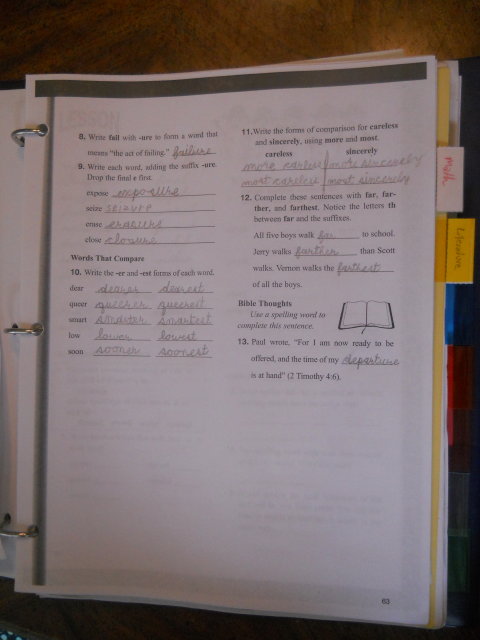 8. Write fail with -ure to form a word that
means "the act of failing." failure
9. Write each word, adding the suffix -ure.
Drop the final e first.
expose exposure
seize seizure
erase erasure
close closure
Words That Compare
10. Write the -er and -est forms of each word.
dear dearer dearest
queer queerer queerest
smart smarter smartest
low lower lowest
soon sooner soonest
11. Write the forms of comparison for careless
and sincerely, using more and most.
careless sincerely
more careless more sincerely
most careless most sincerely
12. Complete these sentences with far, far-
ther, and farthest. Notice the letters th
between far and the suffixes.
All five boys walk far to school.
Jerry walks farther than Scott
walks. Vernon walks the farthest
of all the boys.
Bible Thoughts
Use a spelling word to
complete this sentence.
13. Paul wrote, "For I am now ready to be
offered, and the time of my departure
is at hand" (2 Timothy 4:6).
63
Math
Literature